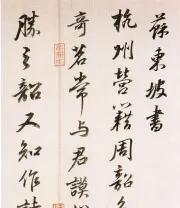 蘇東坡書
杭州營籍周韶多
奇茗常与君謨
勝之韶又知作詩